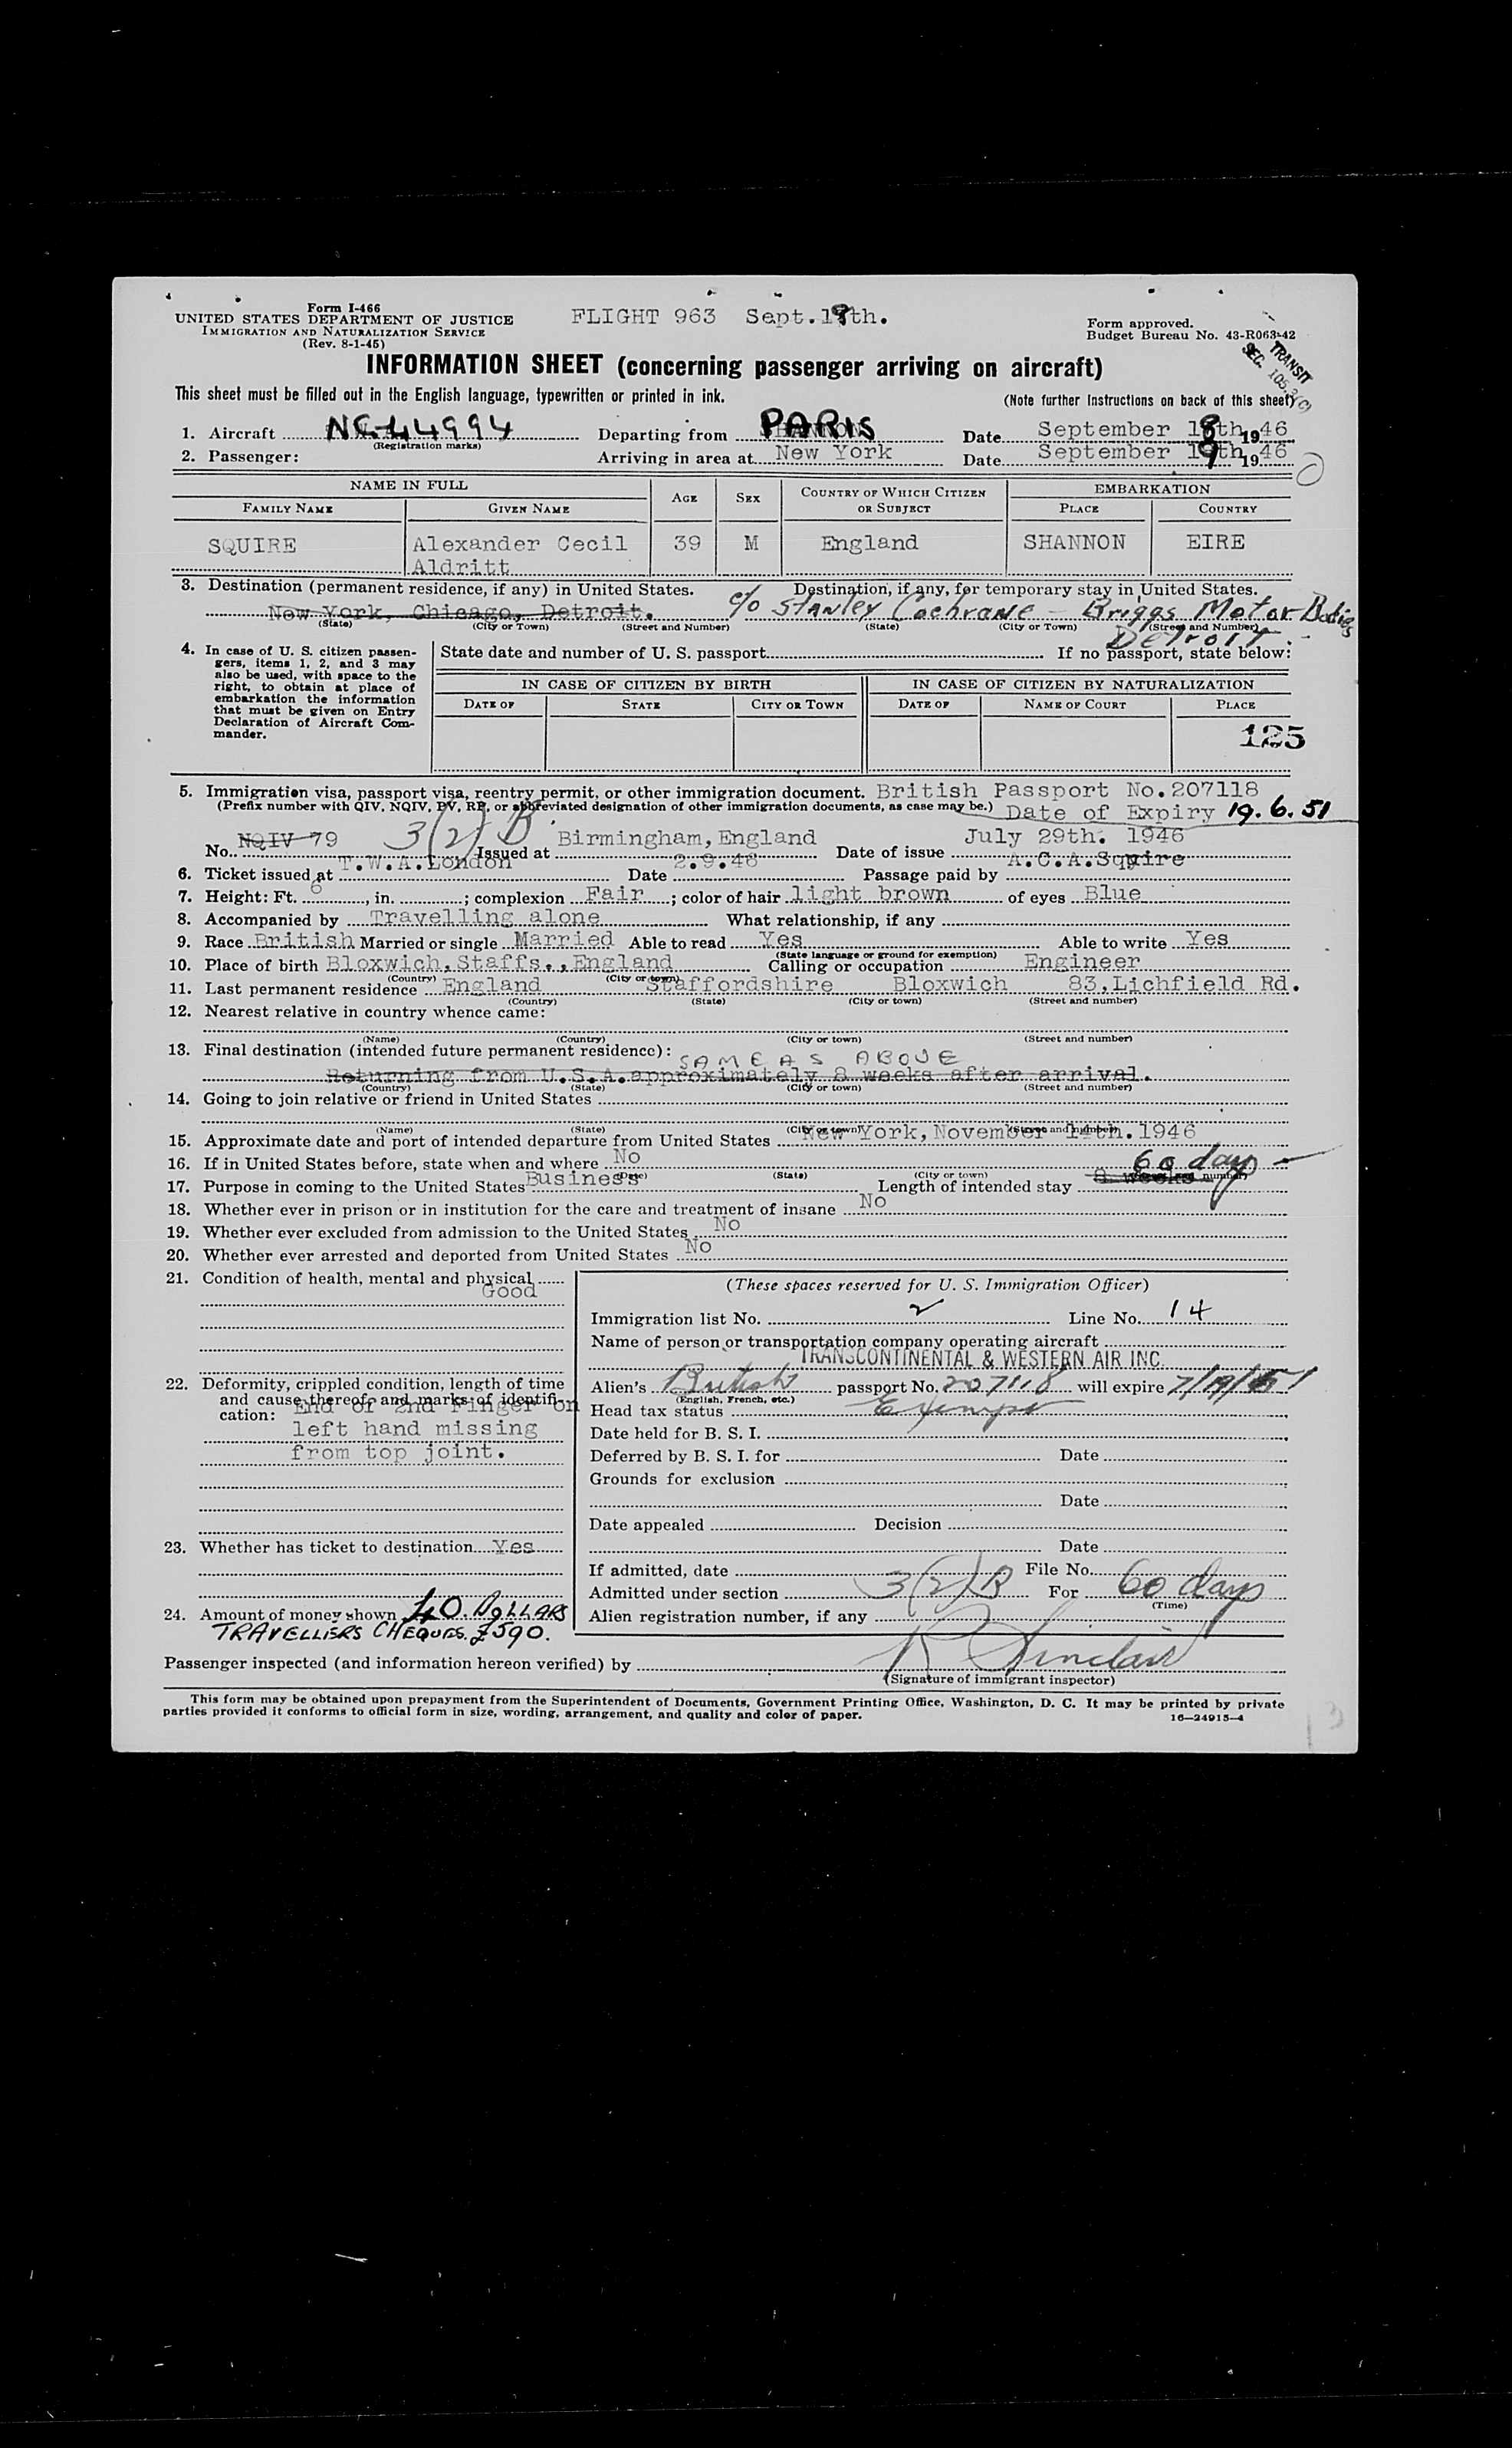 Form I-466
UNITED STATES DEPARTMENT OF JUSTICE
IMMIGRATION AND NATURALIZATION SERVICE
(Rev. 8-1-45)
FLIGHT 963 Sept.19th.
Form approved.
Budget Bureau No. 43-R063-42
TRANSIT
SEC. 105.3
INFORMATION SHEET (concerning passenger arriving on aircraft)
This sheet must be filled out in the English language, typewritten or printed in ink.
(Note further Instructions on back of this sheet)
1. Aircraft NC-44994 Departing from PARIS Date September 18th 1946
(Registration marks)
2. Passenger: Arriving in area at New York Date September 19th 1946
NAME IN FULL AGE SEX COUNTRY OF WHICH CITIZEN OR SUBJECT EMBARKATION
FAMILY NAME GIVEN NAME PLACE COUNTRY
SQUIRE Alexander Cecil 39 M England SHANNON EIRE
Aldritt
3. Destination (permanent residence, if any) in United States. Destination, if any, for temporary stay in United States.
New York, Chicago, Detroit. c/o Stanley Cochrane - Briggs Motor Bodies
(State) (City or Town) (Street and Number) (State) (City or Town) (Street and Number)
Detroit.
4. In case of U. S. citizen passengers, items 1, 2, and 3 may also be used, with space to the right, to obtain at place of embarkation the information that must be given on Entry Declaration of Aircraft Commander.
State date and number of U. S. passport If no passport, state below:
IN CASE OF CITIZEN BY BIRTH IN CASE OF CITIZEN BY NATURALIZATION
DATE OF STATE CITY OR TOWN DATE OF NAME OF COURT PLACE
125
5. Immigration visa, passport visa, reentry permit, or other immigration document. British Passport No.207118
(Prefix number with QIV, NQIV, PV, RP, or abbreviated designation of other immigration documents, as case may be.) Date of Expiry 19.6.51
No. NQIV 79 3(2)B. Issued at Birmingham, England Date of issue July 29th. 1946
6. Ticket issued at T.W.A.London Date 2.9.46 Passage paid by A.C.A.Squire
7. Height: Ft. 6, in. ; complexion Fair ; color of hair light brown of eyes Blue
8. Accompanied by Travelling alone What relationship, if any
9. Race British Married or single Married Able to read Yes Able to write Yes
(State language or ground for exemption)
10. Place of birth Bloxwich, Staffs., England Calling or occupation Engineer
(Country) (City or town)
11. Last permanent residence England Staffordshire Bloxwich 83, Lichfield Rd.
(Country) (State) (City or town) (Street and number)
12. Nearest relative in country whence came:
(Name) (Country) (City or town) (Street and number)
13. Final destination (intended future permanent residence): SAME AS ABOVE
Returning from U.S.A. approximately 8 weeks after arrival.
(Country) (State) (City or town) (Street and number)
14. Going to join relative or friend in United States
(Name) (State) (City or town) (Street and number)
15. Approximate date and port of intended departure from United States New York, November 14th. 1946
16. If in United States before, state when and where No
(Date) (State) (City or town)
60 days
17. Purpose in coming to the United States Business Length of intended stay 8 weeks
18. Whether ever in prison or in institution for the care and treatment of insane No
19. Whether ever excluded from admission to the United States No
20. Whether ever arrested and deported from United States No
21. Condition of health, mental and physical
Good
(These spaces reserved for U. S. Immigration Officer)
Immigration list No. 2 Line No. 14
Name of person or transportation company operating aircraft
TRANSCONTINENTAL & WESTERN AIR INC.
22. Deformity, crippled condition, length of time and cause thereof and marks of identification: End of 2nd Finger on
left hand missing
from top joint.
Alien's British passport No. 207118 will expire 7/19/51
(English, French, etc.)
Head tax status Exempt
Date held for B. S. I.
Deferred by B. S. I. for Date
Grounds for exclusion
Date
Date appealed Decision
Date
23. Whether has ticket to destination Yes
If admitted, date File No.
Admitted under section 3(2)B For 60 days
(Time)
24. Amount of money shown 40 DOLLARS
TRAVELLERS CHEQUES. £590.
Alien registration number, if any
Passenger inspected (and information hereon verified) by R Sinclair
(Signature of immigrant inspector)
This form may be obtained upon prepayment from the Superintendent of Documents, Government Printing Office, Washington, D. C. It may be printed by private
parties provided it conforms to official form in size, wording, arrangement, and quality and color of paper.
16—24915-4